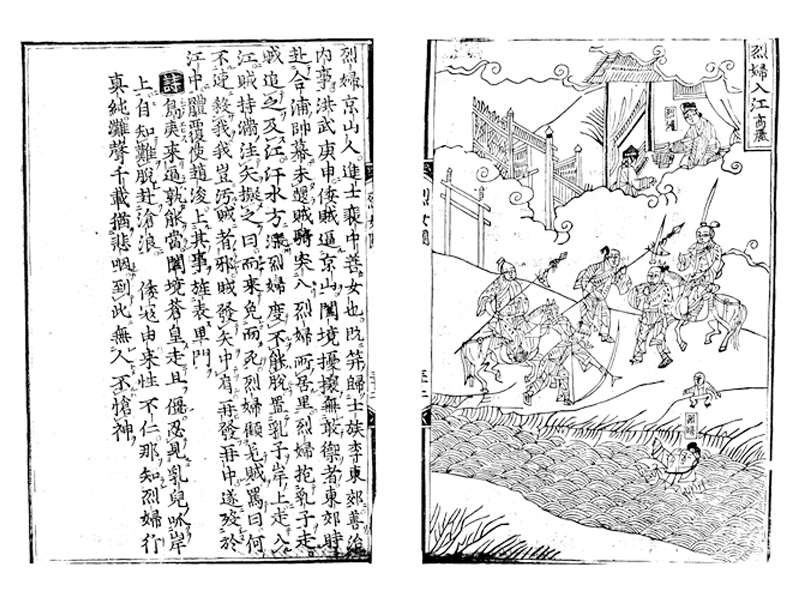 烈婦入江 高麗
烈婦
烈婦
烈女圖
烈婦京山人進士裵中善女也既笄歸士族李東郊善治
内事洪武庚申倭賊逼京山闔境擾攘無敢禦者東郊時
赴合浦帥幕未還賊騎突入烈婦所居里烈婦抱乳子走
賊追之及江江水方漲烈婦度不能脫置乳子岸上走入
江賊持滿注矢擬之曰而來免而死烈婦顧見賊罵曰何
不速殺我我豈汚賊者邪賊發矢中肩再發再中遂歿於
江中體覆使趙浚上其事旌表里門
詩 島夷來逼孰能當闔境蒼皇走且僵忍見乳兒呱岸
上自知難脫赴滄浪 倭寇由來性不仁那知烈婦行
真純灘聲千載猶悲咽到此無人不愴神